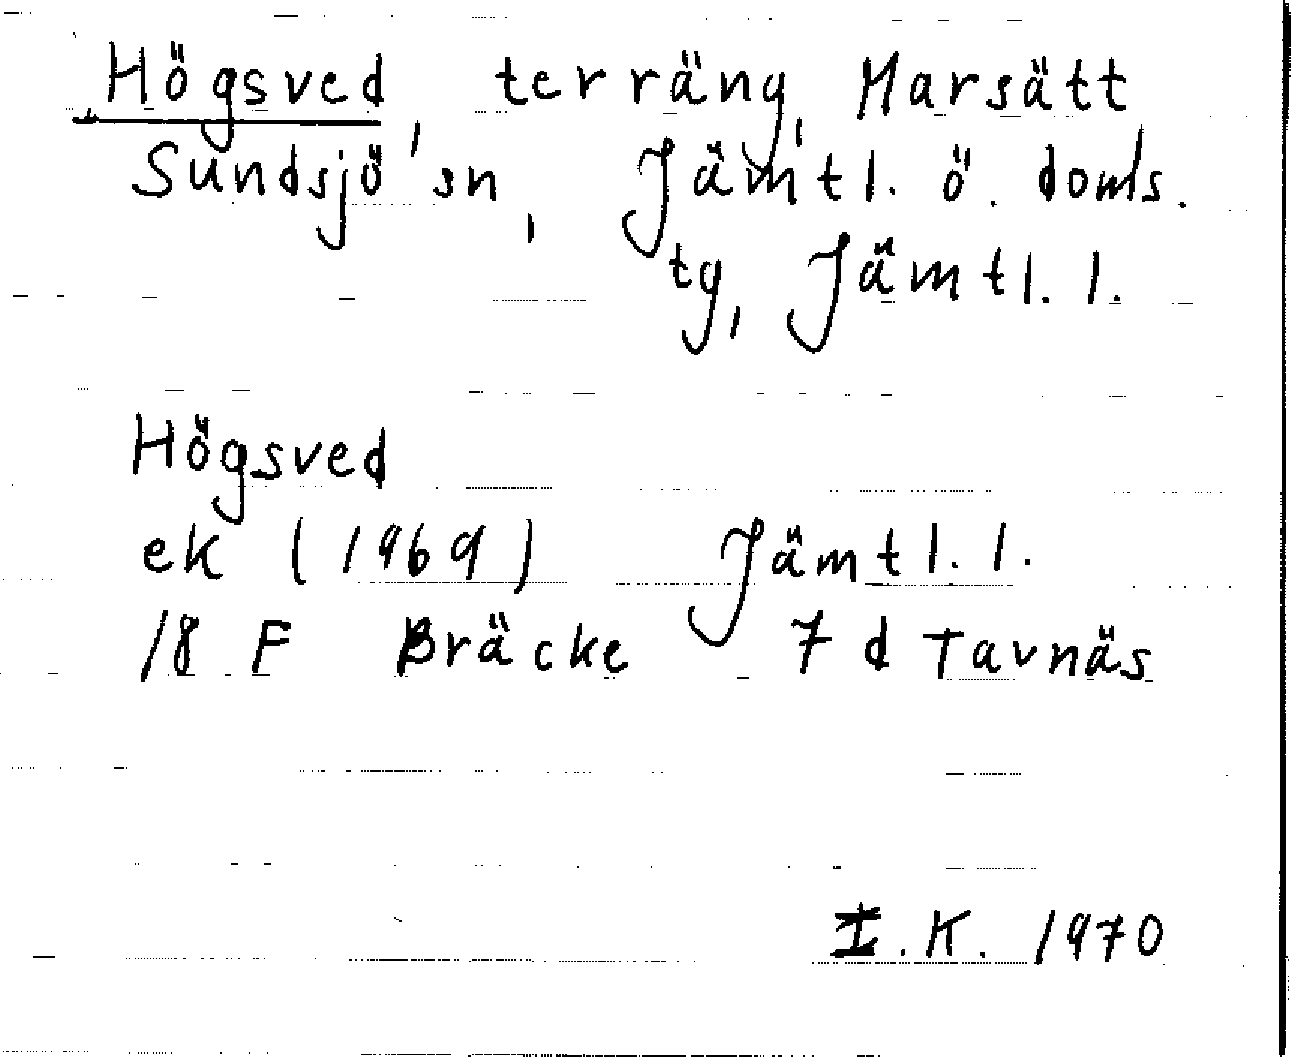 Högsved, terräng, Marsätt,
Sundsjö sn, Jämtl. ö. doms.
tg, Jämtl. l.
Högsved
ek (1969) Jämtl. l.
18 F Bräcke 7 d Tavnäs
I.K. 1970